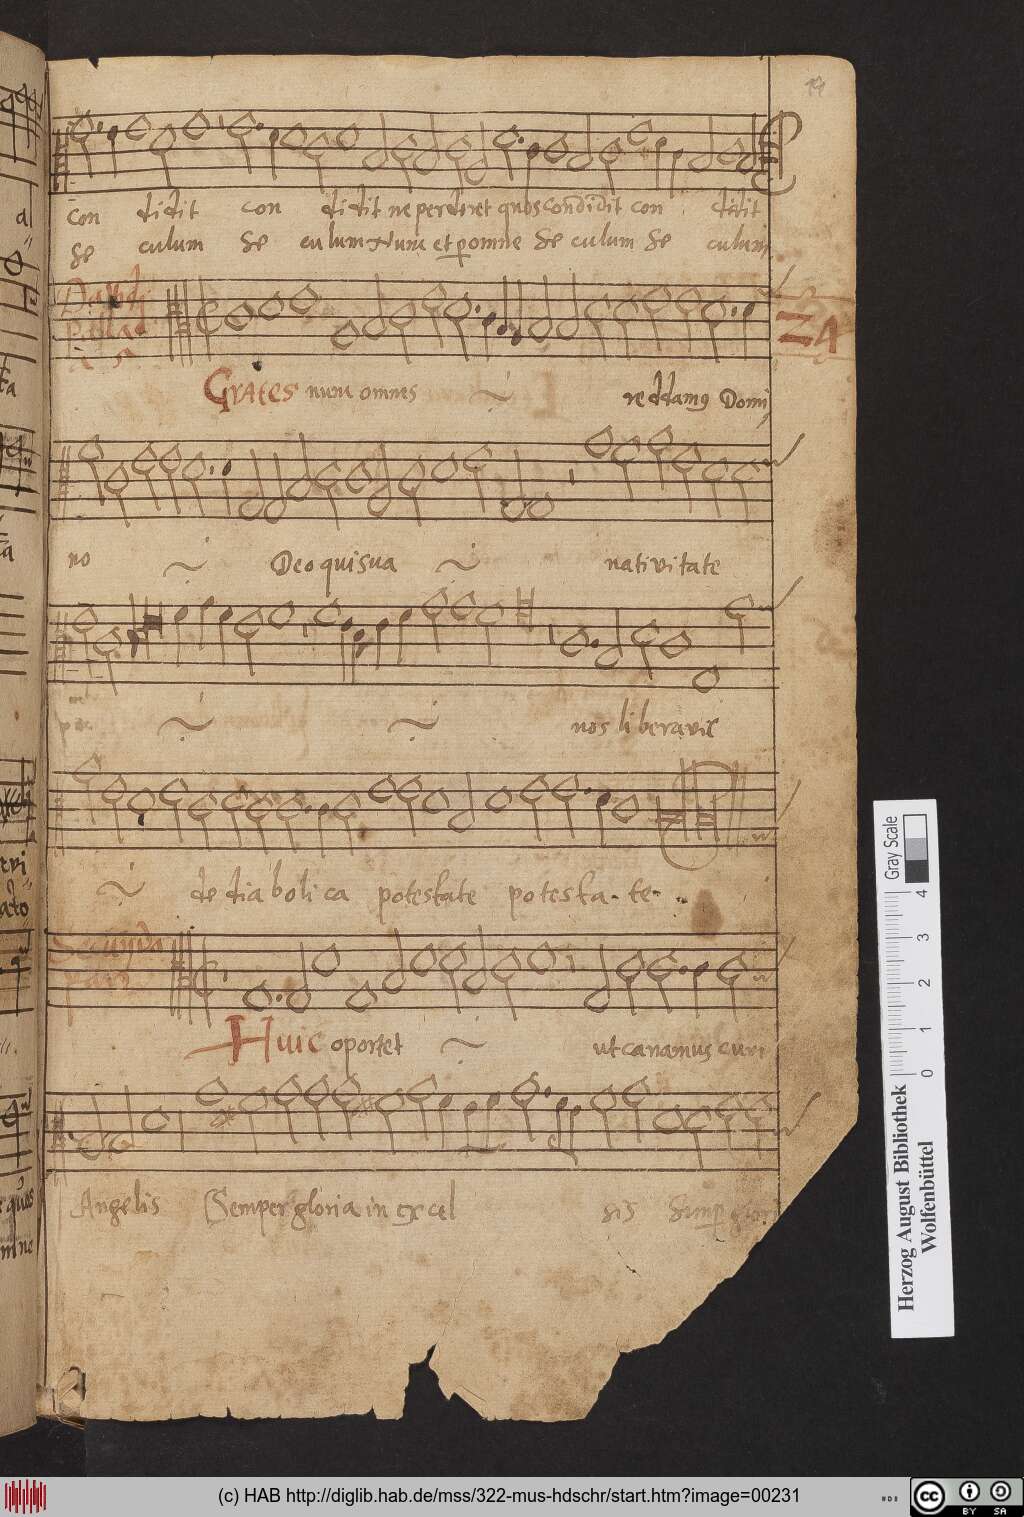 con didit con didit ne perderet quos condidit con didit
Se culum Se culum Nunc et p omne Se culum Se culum
24
Grates nunc omnes reddamus Domi
no Deo qui sua nativitate
nos liberavit
de dia boli ca potestate potesta. te.
Secunda
pars
Huic oportet ut canamus cum
Angelis Semper gloria in excel sis Semper glori
Gray Scale
4
3
2
1
0
Herzog August Bibliothek
Wolfenbüttel
(c) HAB http://diglib.hab.de/mss/322-mus-hdschr/start.htm?image=00231
cc BY SA